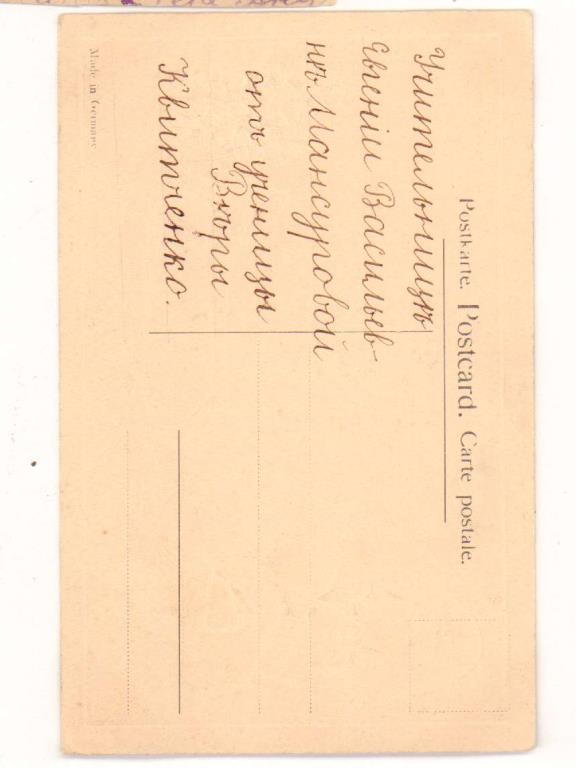 Postkarte. Postcard. Carte postale.
Учительницѣ
Евгеніи Васильев-
нѣ Мансуровой
отъ ученицы
Вѣры
Квитченко.
Made in Germany